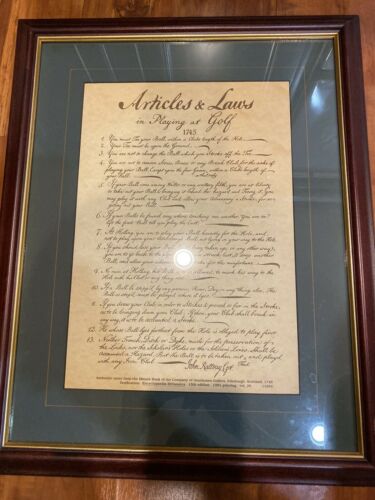 Articles & Laws
in Playing at Golf
1745
1. You must Tee your Ball within a Clubs length of the Hole.
2. Your Tee must be upon the Ground.
3. You are not to change the Ball which you Stroke off the Tee.
4. You are not to remove Stones, Bones or any Break Club for the sake of
playing your Ball Except upon the fair Green within a Clubs length of
your Ball.
5. If your Ball come among Water or any wattery filth, you are at liberty
to take out your Ball & bringing it behind the hazard and Teeing it, you
may play it with any Club and allow your Adversary a Stroke, for so
getting out your Ball.
6. If your Balls be found any where touching one another You are to
lift the first Ball till you play the last.
7. At Holeing you are to play your Ball honestly for the Hole, and
not to play upon your Adversarys Ball not lying in your way to the Hole.
8. If you should lose your Ball by its being taken up, or any other way,
you are to go back to the
Ball, and allow your
9. No man at Holeing his Ball is to be allowed, to mark his way to the
Hole with his Club or any thing else.
10. If a Ball be stopp'd by any person, Horse, Dog, or any thing else. The
Ball so stop'd must be played where it lyes.
11. If you draw your Club in order to Stroke & proceed so far in the Stroke,
as to be bringing down your Club. If then your Club shall break in
any way, it is to be accounted a Stroke.
12. He whose Ball lyes farthest from the Hole is Obliged to play first.
13. Neither Trench, Ditch or Dyke, made for the preservation of
the Links, nor the Scholars Holes or the Soldiers Lines. Shall be
accounted a Hazard. But the Ball is to be taken out, and played
with any Iron Club
John Rattray Cpt